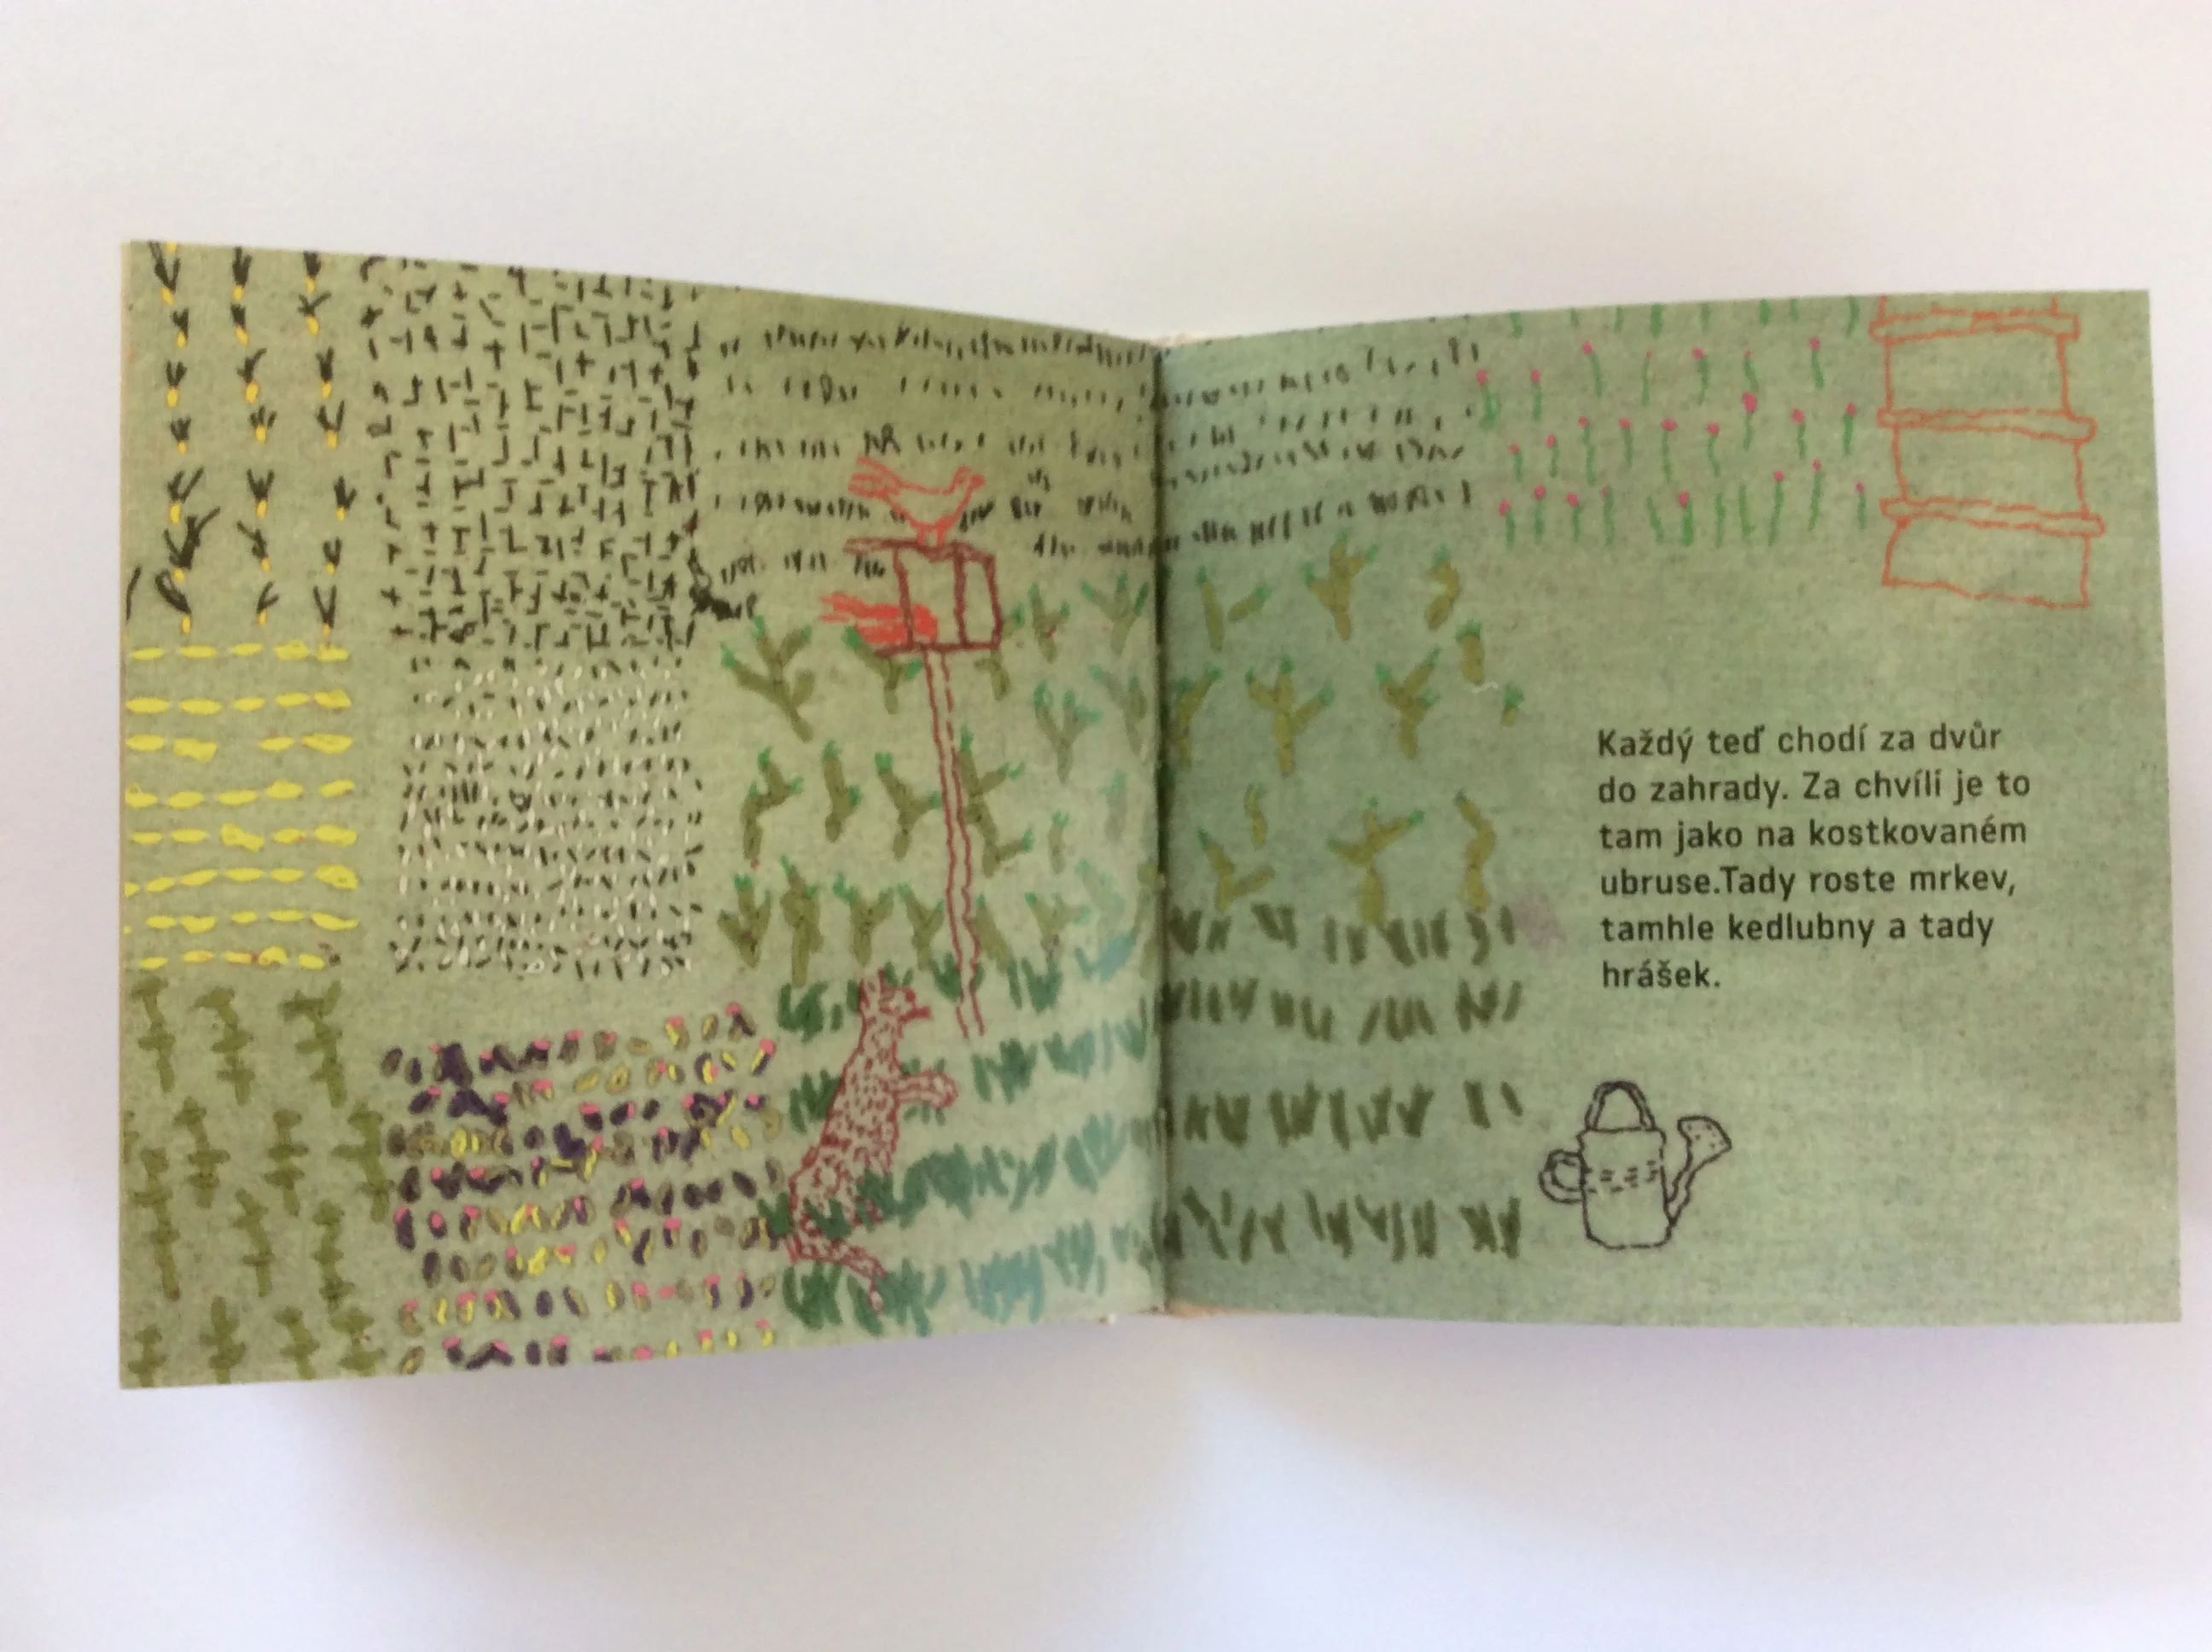 Každý teď chodí za dvůr
do zahrady. Za chvíli je to
tam jako na kostkovaném
ubruse.Tady roste mrkev,
tamhle kedlubny a tady
hrášek.